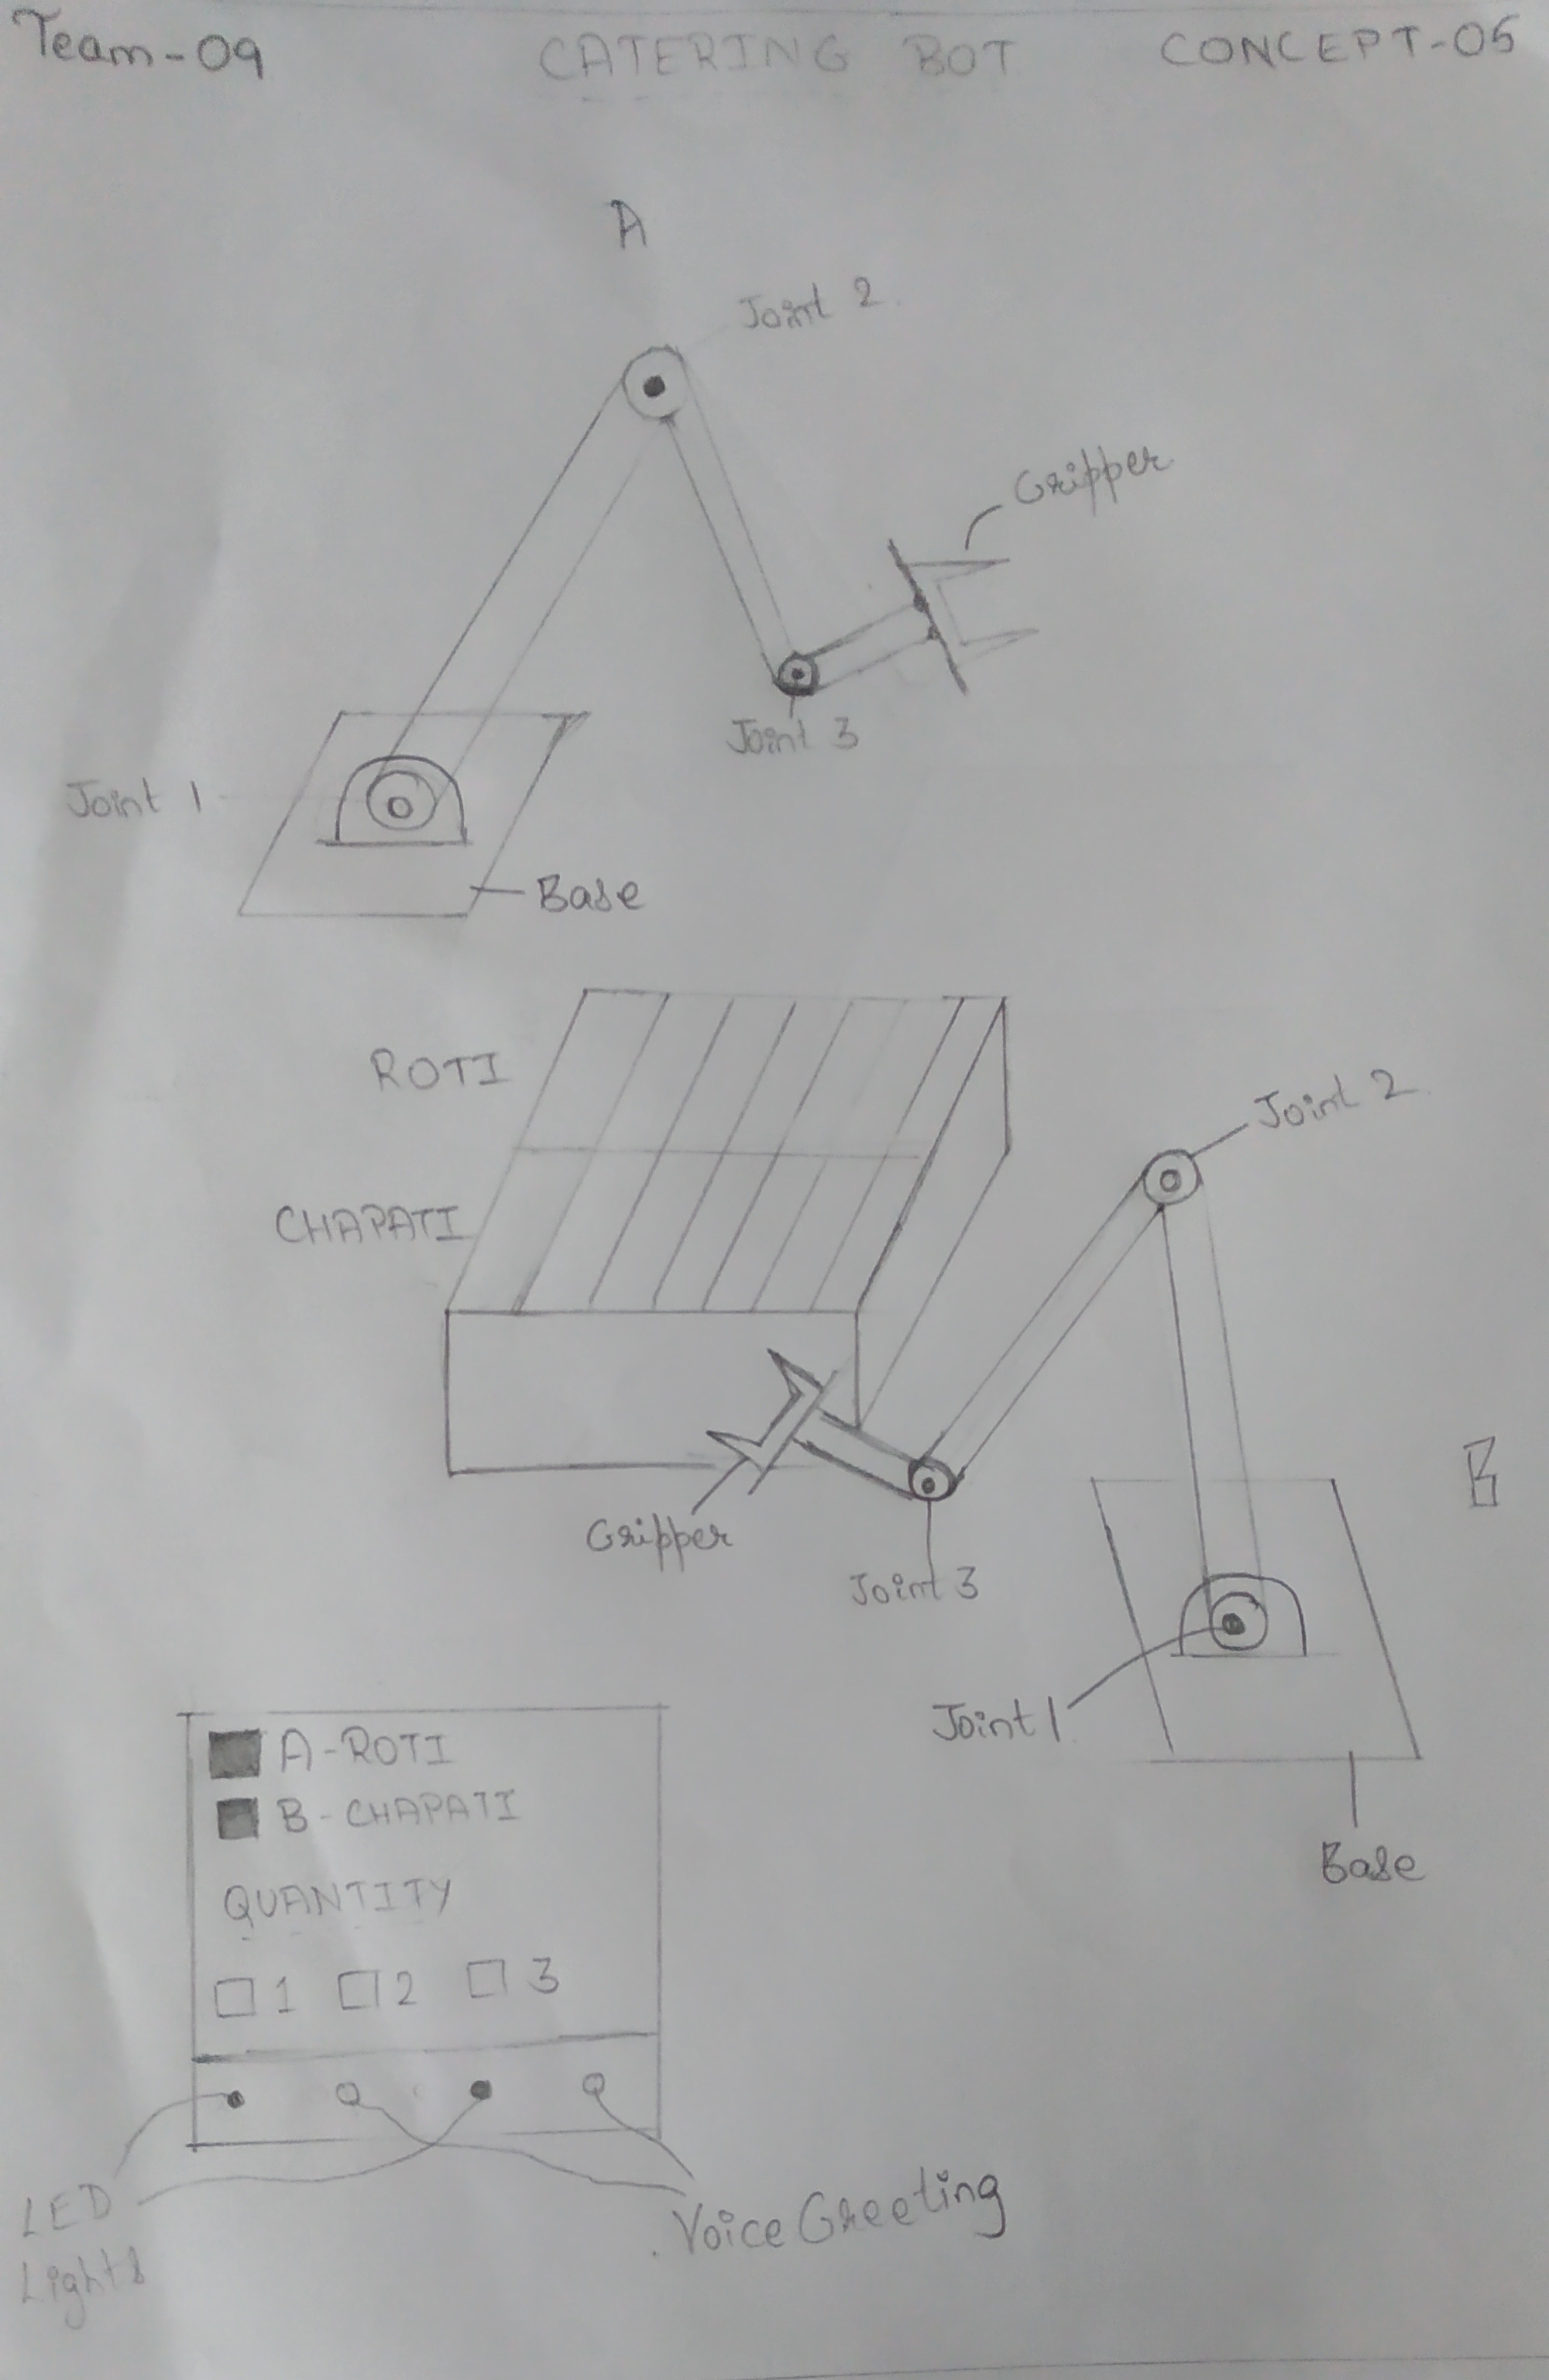 Team-09 CATERING BOT CONCEPT-05
A
Joint 2.
Gripper
Joint 3
Joint 1
Base
ROTI
Joint 2.
CHAPATI
B
Gripper
Joint 3
Joint 1
A-ROTI
B-CHAPATI
Base
QUANTITY
1 2 3
LED
Lights
Voice Greeting